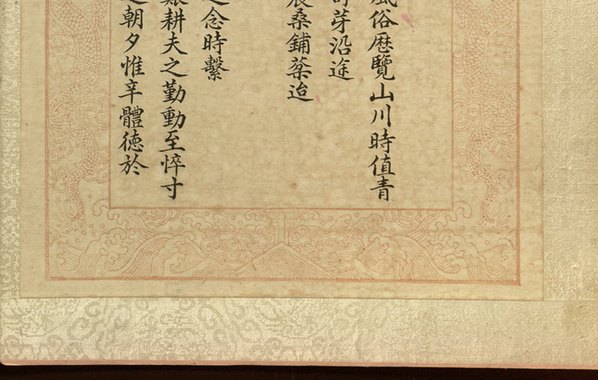 風俗歷覽山川時值青
芽沿途
桑鋪迨
之念時繫
艱耕夫之勤動至悴寸
朝夕惟辛體德於